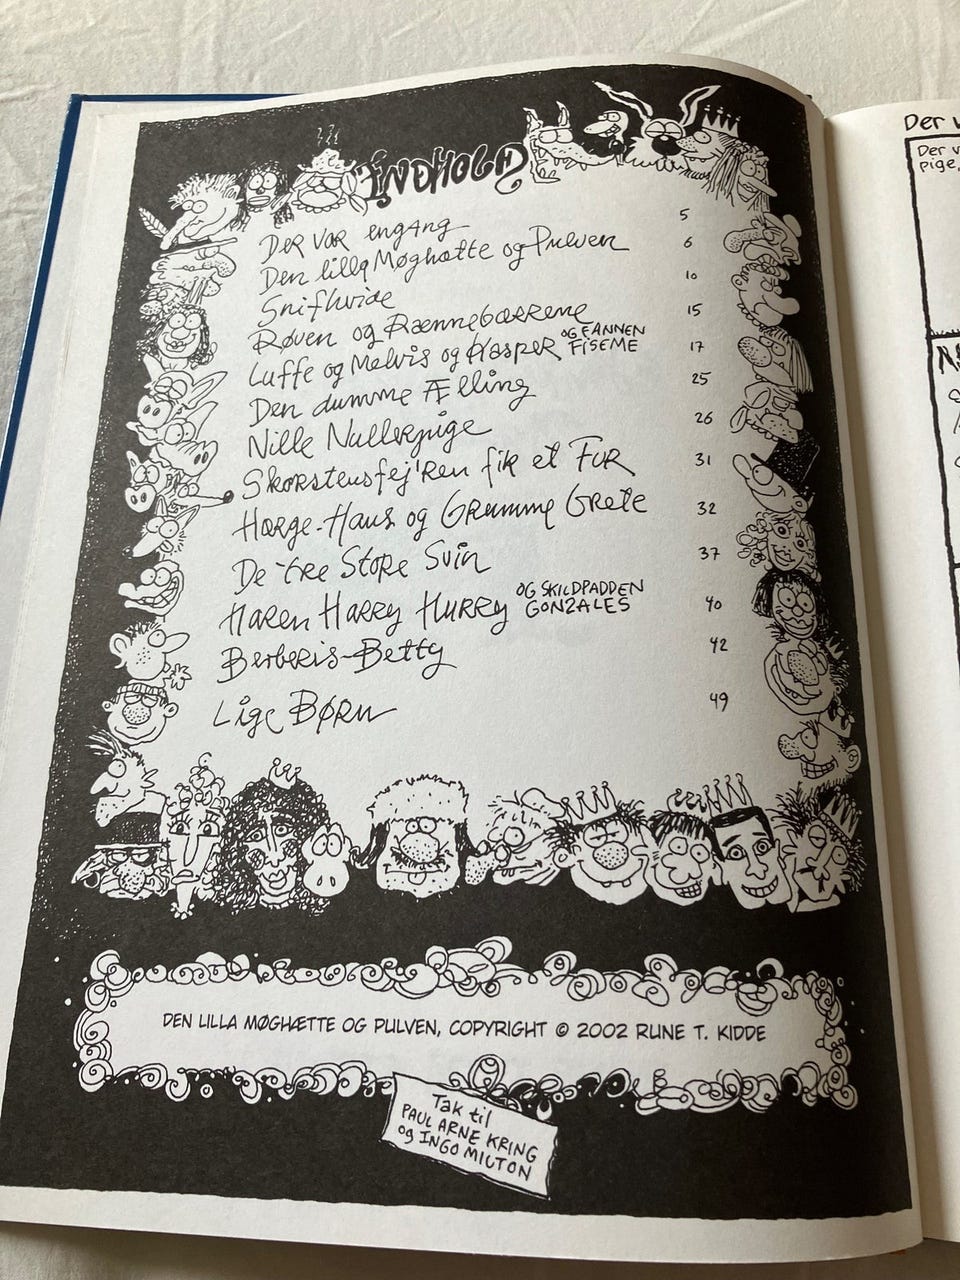 INDHOLD
DER VAR engang 5
Den lilla Møghætte og Pulven 6
Snifhvide 10
Røven og Rænnebærrene 15
Luffe og Melvis og Kasper OG FANNEN FISEME 17
Den dumme Ælling 25
Nille Nullerpige 26
Skorstensfej'ren fik et FUR 31
Harge-Hans og Gramme Grete 32
De tre Store Svin 37
Haren Harry Hurry OG SKILDPADDEN GONZALES 40
Berberis-Betty 42
Lige BØRN 49
DEN LILLA MØGHÆTTE OG PULVEN, COPYRIGHT © 2002 RUNE T. KIDDE
Tak til
PAUL ARNE KRING
og INGO MILTON
Der v
Der v
pige,